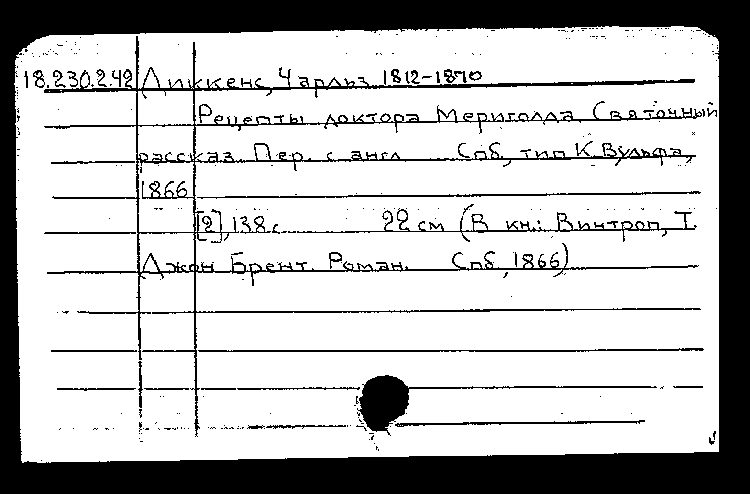 18.230.2.42 Диккенс, Чарльз 1812-1870
Рецепты доктора Мериголда. Святочный
рассказ. Пер. с англ Спб, тип К. Вульфа,
1866
[2], 138 с. 22 см (В кн.: Винтроп, Т.
Джон Брент. Роман. Спб, 1866)